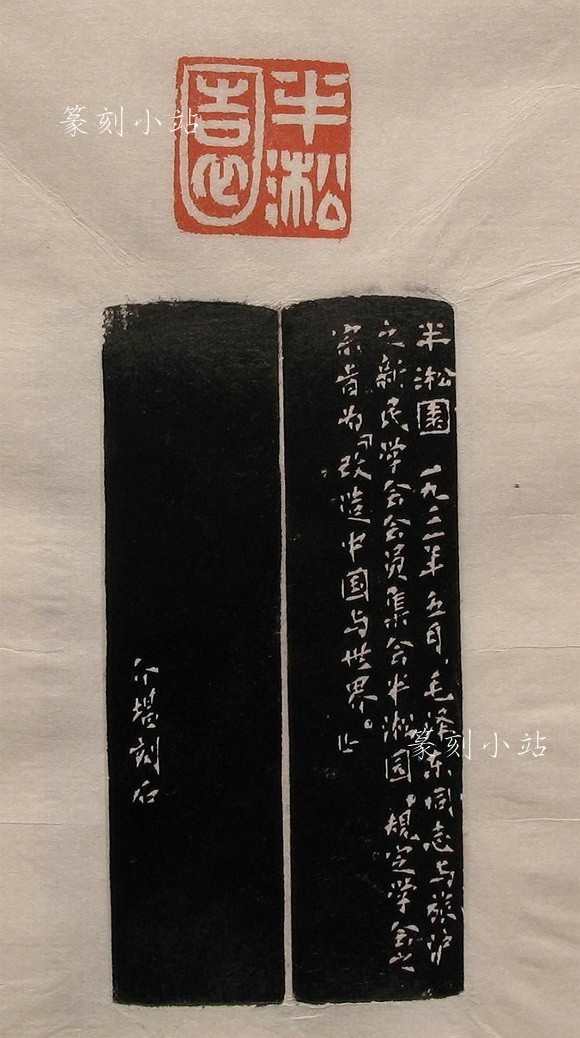 半淞
園
篆刻小站
半淞園 一九二年五月，毛泽东同志与旅沪
之新民学会会员集会半淞园，规定学会之
宗旨为「改造中国与世界。
介堪刻石
篆刻小站